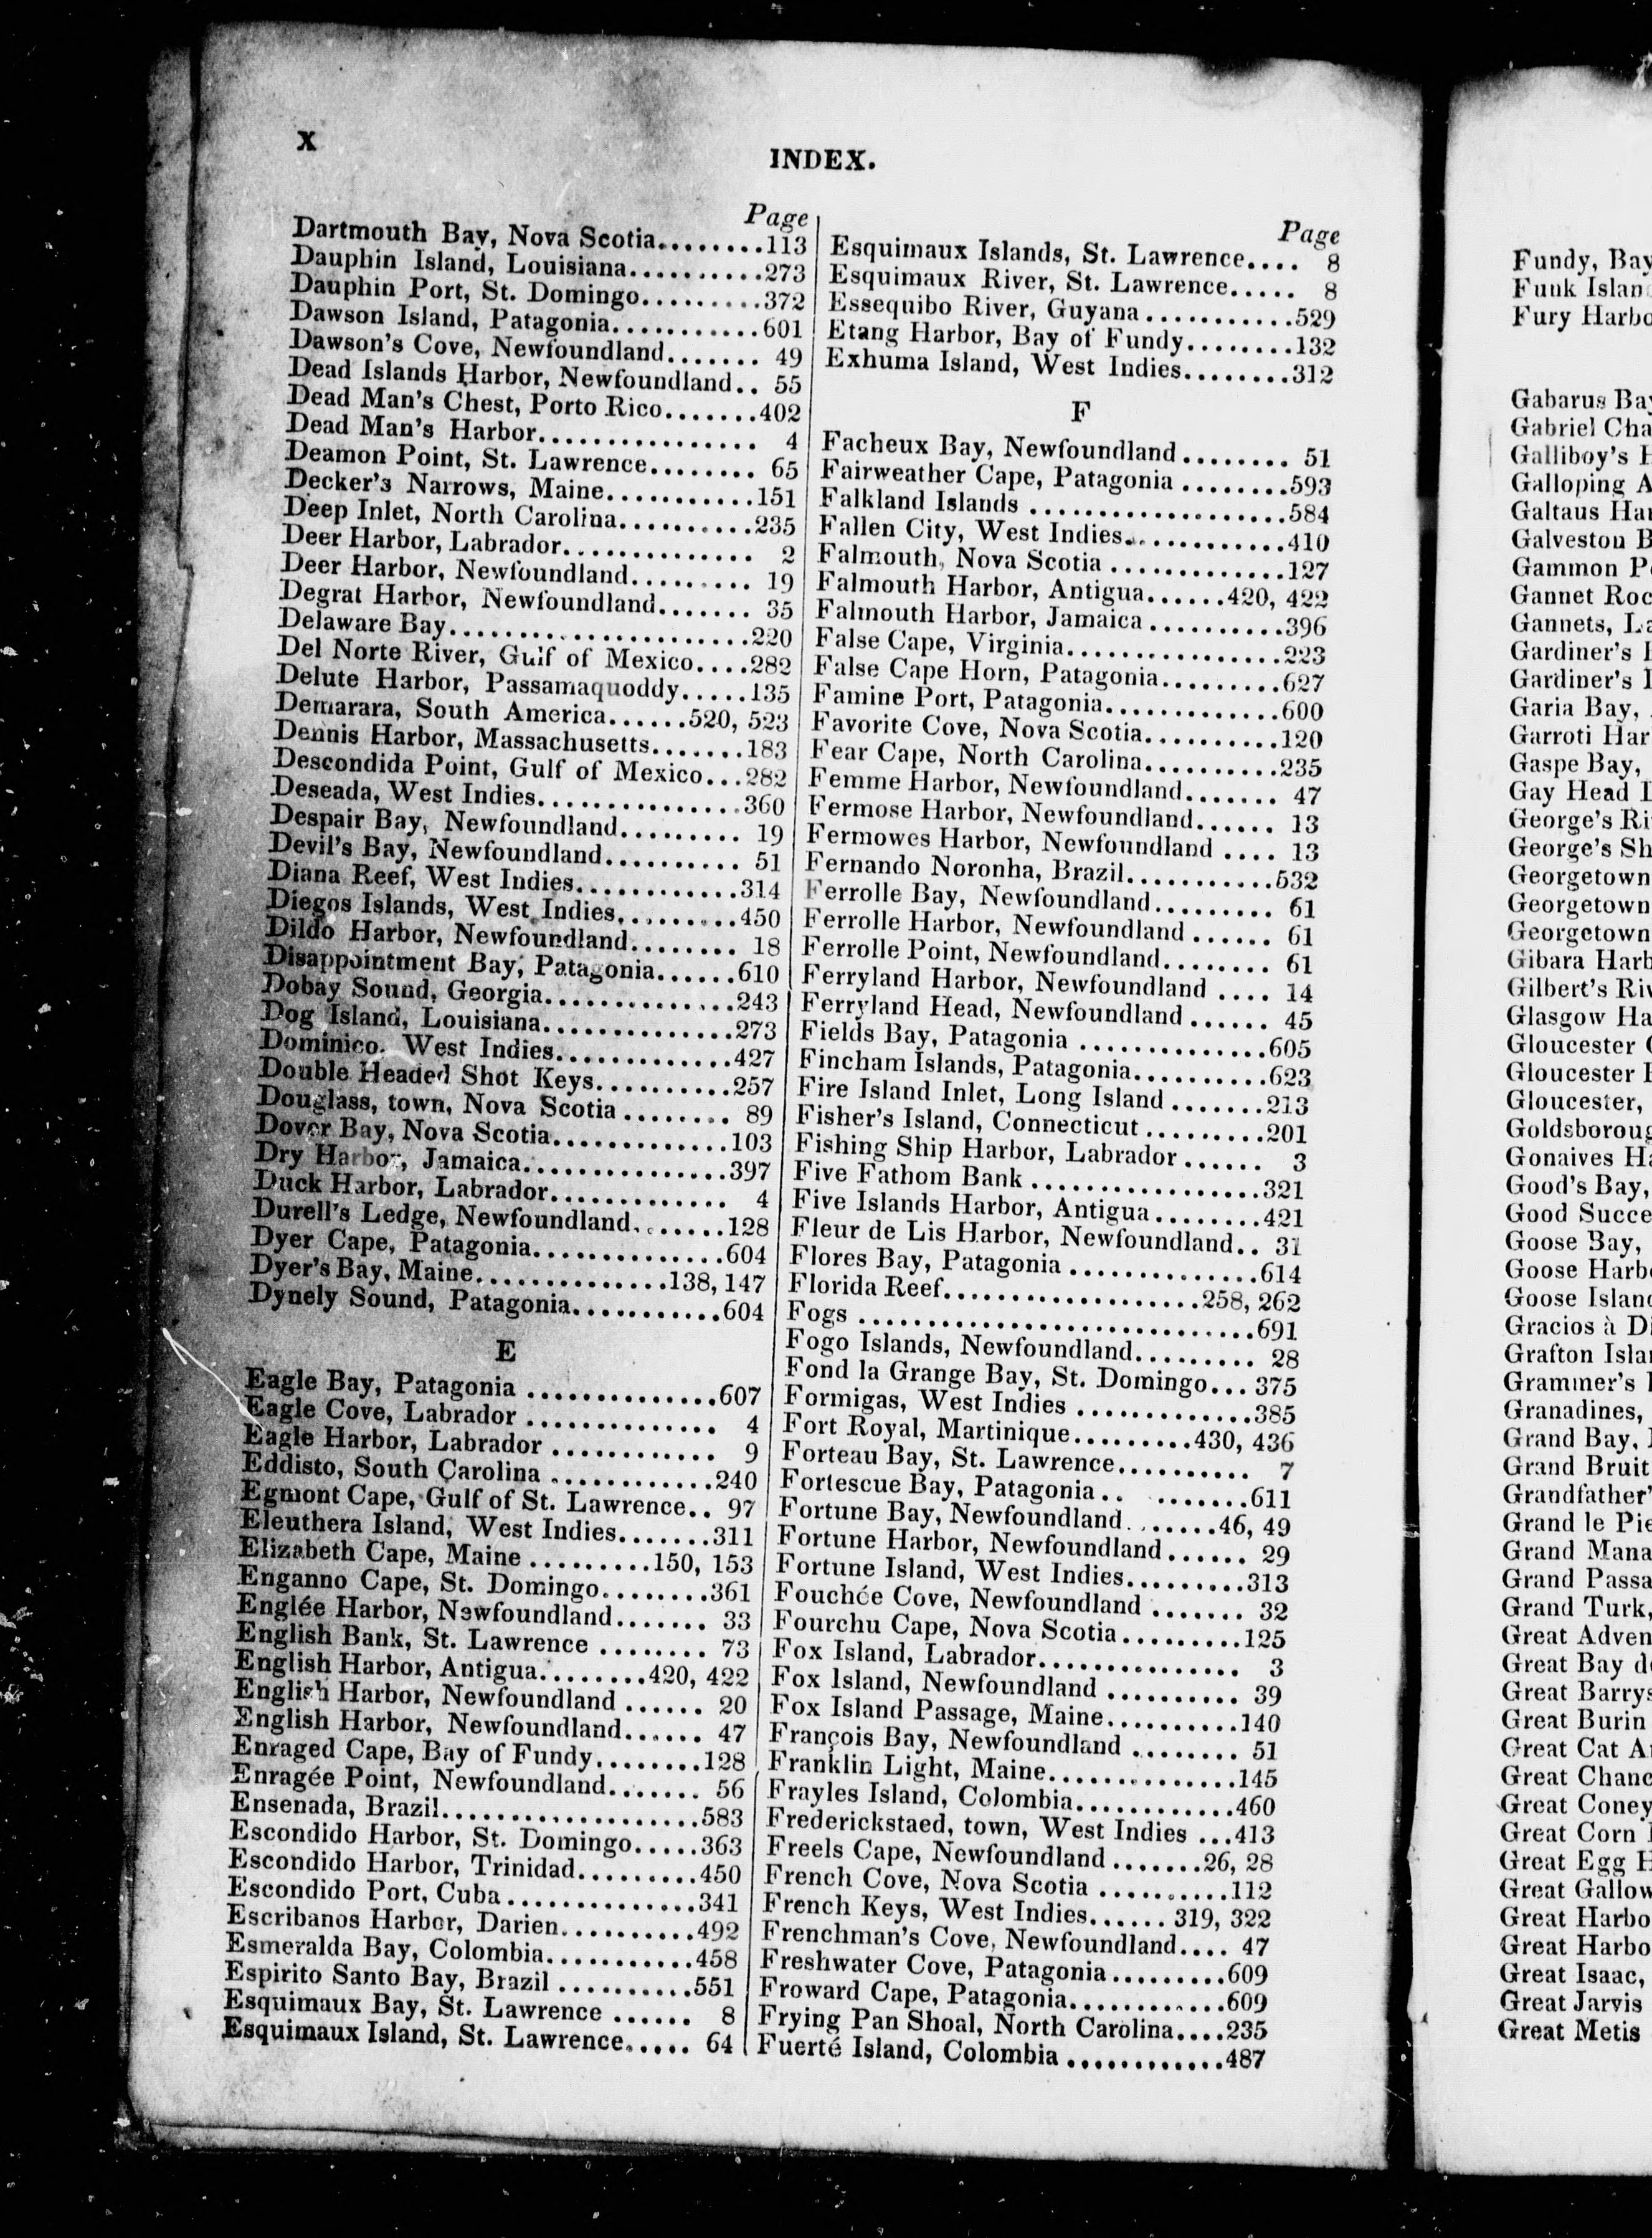 X
INDEX.
Page
Dartmouth Bay, Nova Scotia........113
Dauphin Island, Louisiana..........273
Dauphin Port, St. Domingo.........372
Dawson Island, Patagonia...........601
Dawson's Cove, Newfoundland....... 49
Dead Islands Harbor, Newfoundland.. 55
Dead Man's Chest, Porto Rico.......402
Dead Man's Harbor................ 4
Deamon Point, St. Lawrence........ 65
Decker's Narrows, Maine...........151
Deep Inlet, North Carolina..........235
Deer Harbor, Labrador.............. 2
Deer Harbor, Newfoundland......... 19
Degrat Harbor, Newfoundland....... 35
Delaware Bay......................220
Del Norte River, Gulf of Mexico....282
Delute Harbor, Passamaquoddy.....135
Demarara, South America......520, 523
Dennis Harbor, Massachusetts.......183
Descondida Point, Gulf of Mexico...282
Deseada, West Indies...............360
Despair Bay, Newfoundland......... 19
Devil's Bay, Newfoundland.......... 51
Diana Reef, West Indies............314
Diegos Islands, West Indies.........450
Dildo Harbor, Newfoundland........ 18
Disappointment Bay, Patagonia......610
Dobay Sound, Georgia..............243
Dog Island, Louisiana..............273
Dominico, West Indies.............427
Double Headed Shot Keys..........257
Douglass, town, Nova Scotia ........ 89
Dover Bay, Nova Scotia.............103
Dry Harbor, Jamaica...............397
Duck Harbor, Labrador............. 4
Durell's Ledge, Newfoundland.......128
Dyer Cape, Patagonia..............604
Dyer's Bay, Maine..............138, 147
Dynely Sound, Patagonia...........604
E
Eagle Bay, Patagonia ..............607
Eagle Cove, Labrador .............. 4
Eagle Harbor, Labrador ............ 9
Eddisto, South Carolina ............240
Egmont Cape, Gulf of St. Lawrence.. 97
Eleuthera Island, West Indies.......311
Elizabeth Cape, Maine .........150, 153
Enganno Cape, St. Domingo........361
Englée Harbor, Newfoundland....... 33
English Bank, St. Lawrence ........ 73
English Harbor, Antigua........420, 422
English Harbor, Newfoundland ...... 20
English Harbor, Newfoundland...... 47
Enraged Cape, Bay of Fundy........128
Enragée Point, Newfoundland....... 56
Ensenada, Brazil...................583
Escondido Harbor, St. Domingo.....363
Escondido Harbor, Trinidad.........450
Escondido Port, Cuba..............341
Escribanos Harbor, Darien..........492
Esmeralda Bay, Colombia...........458
Espirito Santo Bay, Brazil ..........551
Esquimaux Bay, St. Lawrence ...... 8
Esquimaux Island, St. Lawrence..... 64
Page
Esquimaux Islands, St. Lawrence.... 8
Esquimaux River, St. Lawrence..... 8
Essequibo River, Guyana ...........529
Etang Harbor, Bay of Fundy........132
Exhuma Island, West Indies........312
F
Facheux Bay, Newfoundland ........ 51
Fairweather Cape, Patagonia ........593
Falkland Islands ...................584
Fallen City, West Indies.............410
Falmouth, Nova Scotia .............127
Falmouth Harbor, Antigua......420, 422
Falmouth Harbor, Jamaica ..........396
False Cape, Virginia................223
False Cape Horn, Patagonia.........627
Famine Port, Patagonia.............600
Favorite Cove, Nova Scotia..........120
Fear Cape, North Carolina..........235
Femme Harbor, Newfoundland....... 47
Fermose Harbor, Newfoundland...... 13
Fermowes Harbor, Newfoundland .... 13
Fernando Noronha, Brazil...........532
Ferrolle Bay, Newfoundland......... 61
Ferrolle Harbor, Newfoundland ...... 61
Ferrolle Point, Newfoundland........ 61
Ferryland Harbor, Newfoundland .... 14
Ferryland Head, Newfoundland ...... 45
Fields Bay, Patagonia ..............605
Fincham Islands, Patagonia..........623
Fire Island Inlet, Long Island .......213
Fisher's Island, Connecticut .........201
Fishing Ship Harbor, Labrador ...... 3
Five Fathom Bank .................321
Five Islands Harbor, Antigua........421
Fleur de Lis Harbor, Newfoundland.. 31
Flores Bay, Patagonia ..............614
Florida Reef...................258, 262
Fogs .............................691
Fogo Islands, Newfoundland......... 28
Fond la Grange Bay, St. Domingo... 375
Formigas, West Indies .............385
Fort Royal, Martinique.........430, 436
Forteau Bay, St. Lawrence.......... 7
Fortescue Bay, Patagonia.. .......611
Fortune Bay, Newfoundland.......46, 49
Fortune Harbor, Newfoundland...... 29
Fortune Island, West Indies.........313
Fouchée Cove, Newfoundland ....... 32
Fourchu Cape, Nova Scotia.........125
Fox Island, Labrador............... 3
Fox Island, Newfoundland .......... 39
Fox Island Passage, Maine..........140
François Bay, Newfoundland ........ 51
Franklin Light, Maine..............145
Frayles Island, Colombia............460
Frederickstaed, town, West Indies ...413
Freels Cape, Newfoundland .......26, 28
French Cove, Nova Scotia ..........112
French Keys, West Indies...... 319, 322
Frenchman's Cove, Newfoundland.... 47
Freshwater Cove, Patagonia.........609
Froward Cape, Patagonia............609
Frying Pan Shoal, North Carolina....235
Fuerté Island, Colombia ............487
Fundy, Bay
Funk Islan
Fury Harbo
Gabarus Ba
Gabriel Cha
Galliboy's
Galloping A
Galtaus Ha
Galveston B
Gammon P
Gannet Roc
Gannets, La
Gardiner's
Gardiner's
Garia Bay,
Garroti Har
Gaspe Bay,
Gay Head
George's Ri
George's Sh
Georgetown
Georgetown
Georgetown
Gibara Harb
Gilbert's Riv
Glasgow Ha
Gloucester
Gloucester
Gloucester,
Goldsboroug
Gonaives Ha
Good's Bay,
Good Succe
Goose Bay,
Goose Harb
Goose Island
Gracios à D
Grafton Islan
Grammer's
Granadines,
Grand Bay,
Grand Bruit
Grandfather'
Grand le Pie
Grand Mana
Grand Passa
Grand Turk,
Great Adven
Great Bay d
Great Barrys
Great Burin
Great Cat A
Great Chanc
Great Coney
Great Corn
Great Egg H
Great Gallow
Great Harbo
Great Harbo
Great Isaac,
Great Jarvis
Great Metis